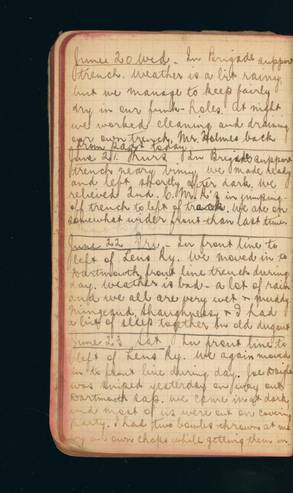 June 20 Wed. In Brigade support
trench. Weather is a bit rainy
but we manage to keep fairly
dry in our funk-holes. At night
we worked cleaning and draining
our own trench. Mr. Holmes back
from Paris today.
June 21. Thurs. In Brigade support
trench near Vimy. We made ready
and left shortly after dark. We
relieved 2nd. in
off trench to left of track. We are on
somewhat wider front than last time.
June 22 Fri. - In front line to
left of Lens Ry. We moved in to
Dartmouth front line trench during
day. Weather is bad - a lot of rain
and we all are very wet & muddy.
Shaughnessy & I had
a bit of sleep together in old dugout
June 23 Sat In front line to
left of Lens Ry. We again moved
in to front line during day. Joe
was sniped yesterday on way out
Dartmouth sap. We came in at dark
and most of us were out on covering
party. I had two bombs thrown at me
by our own chaps while getting them in